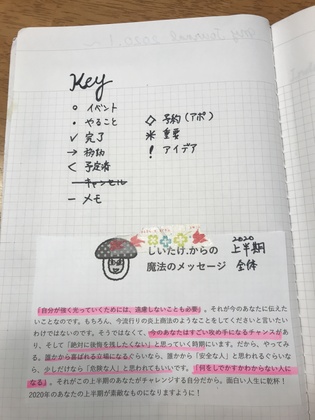 Key
○ イベント
・ やること
✓ 完了
→ 移動
< 予定済
キャンセル
― メモ
◇ 予約(アポ)
＊ 重要
! アイデア
しいたけ.からの
魔法のメッセージ
2020
上半期
全体
「自分が強く光っていくためには、遠慮しないことも必要」。それが今のあなたに伝えた
いことなのです。もちろん、今流行りの炎上商法のようなことをしてくださいと言いたい
わけではないのです。そうではなくて、今のあなたはすごい攻め手になるチャンスがあ
り、そして「絶対に後悔を残したくない」と思っている時期にいます。だから、やってみ
る。誰かから喜ばれる立場になるぐらいなら、誰かから「安全な人」と思われるぐらいな
ら、少しだけなら「危険な人」と思われてもいいです。「何をしでかすかわからない人に
なる」。それがこの上半期のあなたがチャレンジする自分だから。面白い人生に乾杯！
2020年のあなたの上半期が素敵なものになりますように！